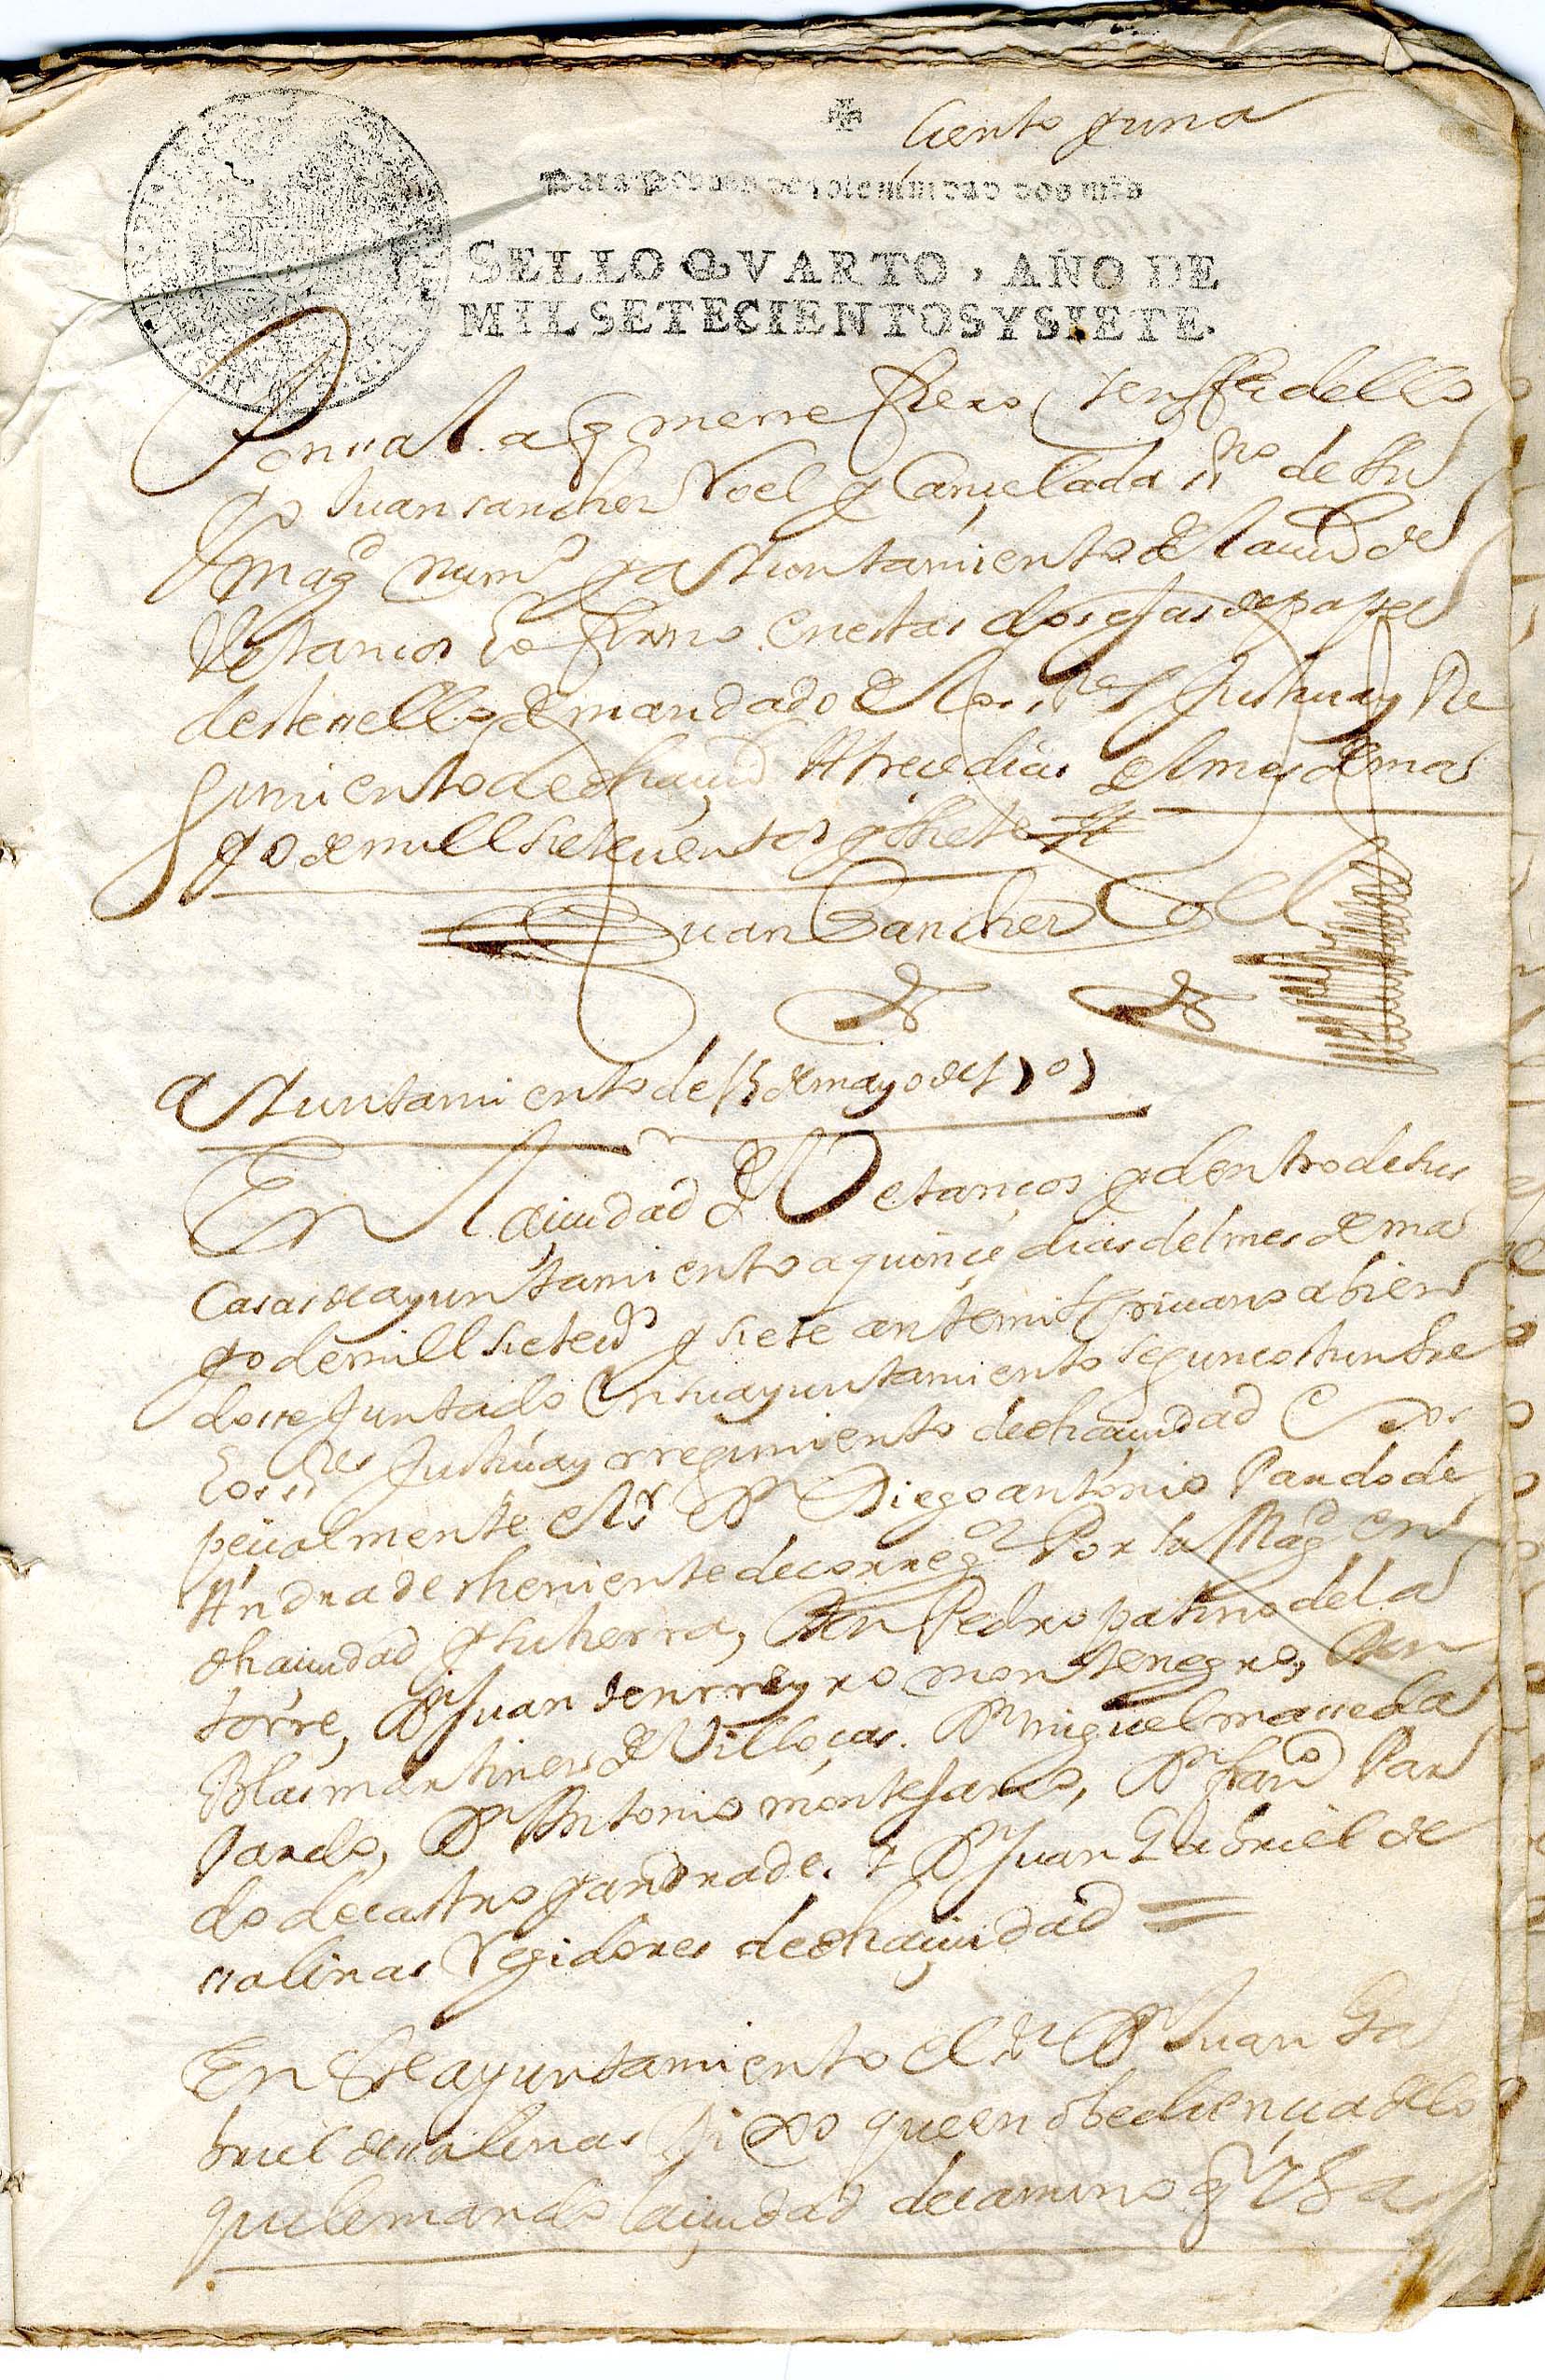 ciento y una
Para pobres de solemnidad dos mrs
SELLO QVARTO, AÑO DE
MIL SETECIENTOS Y SIETE.
original a q me rrefiero, y en ffee dello
yo Juan sanchez Voel y Cancelada ssno de su
magd numo y aiuntamiento de la ciud de
Vetanços lo firmo en estas dos ojas de papel
deste sello de mandado de los sres Justicia y Re
gimiento de dha ciud A treçe dias del mes de ma
yo de mill siete cientos y siete
Juan Sanchez Voel
aiuntamiento de 15 de mayo de 1707
En la çiudad de Vetanços y dentro de sus
Casas de ayuntamiento a quinçe dias del mes de ma
yo de mill sietecos y siete ante mi escriuano abien
dosse Juntado en su ayuntamiento segun costunbre
los sres Justiçia y rregimiento de dha çiudad es
peçialmente el sr Dn Diego antonio Pardo de
Andrade theniente de corregor Por su Magd en
dha çiudad y su tierra, Don Pedro patino de la
torre, Dn Juan tenrreyro montenegro, Don
Blas martinez de Villoças. Dn miguel maceda
Pardo, Dn Antonio montesaro, Dn Franco Par
do de castro y andrade. y Dn Juan Gabriel de
salinas Regidores de dha çiudad =
En Este ayuntamiento el sr Dn Juan Ga
briel de salinas Dixo que en obediençia de lo
que le mando la çiudad de camino